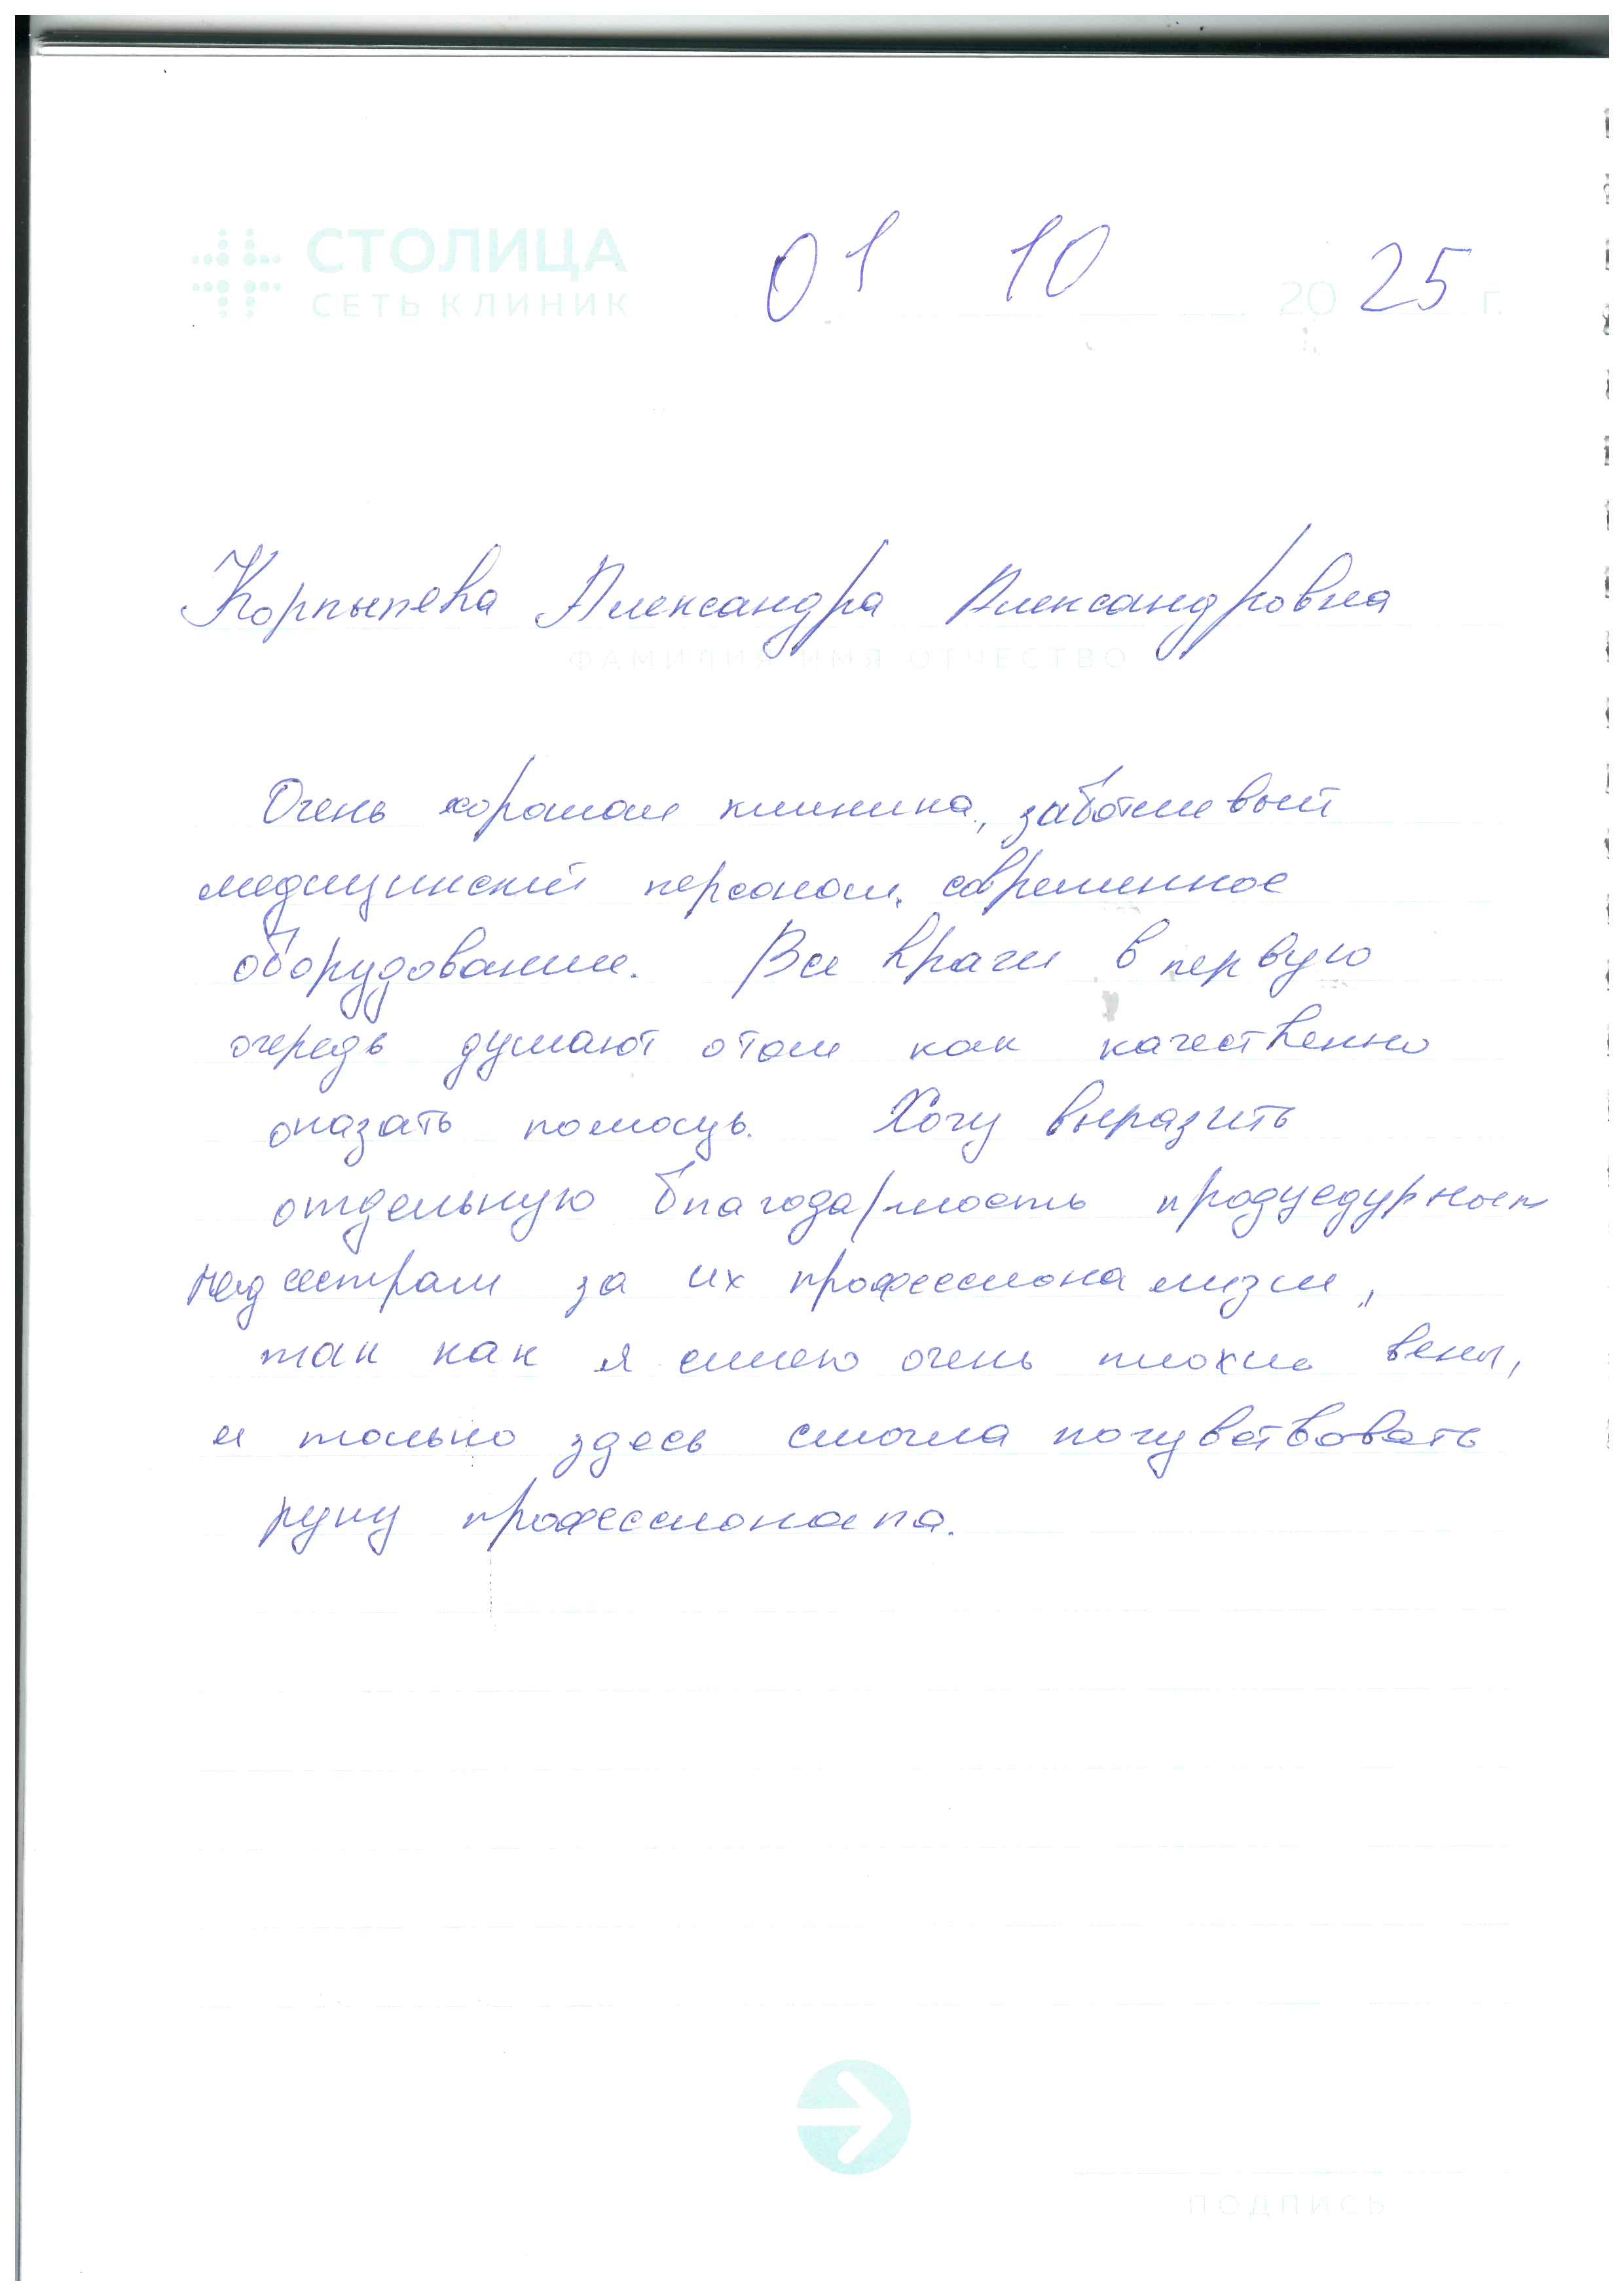 СТОЛИЦА
СЕТЬ КЛИНИК
01 10 2025 г.
Александра Александровна
ФАМИЛИЯ ИМЯ ОТЧЕСТВО
Очень хорошая клиника, заботливый
медицинский персонал, современное
оборудование. Все врачи в первую
очередь думают о том как качественно
оказать помощь. Хочу выразить
отдельную благодарность процедурным
медсестрам за их профессионализм,
так как я имею очень плохие вены,
и только здесь смогла почувствовать
руку профессионала.
ПОДПИСЬ